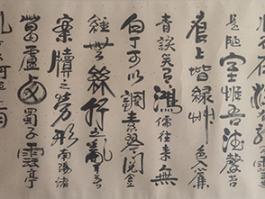 是陋室惟吾德馨苔
痕上堦綠草色入簾
青談笑有鴻儒往來無
白丁可以調素琴閱金
經無絲竹之亂耳無
案牘之勞形南陽諸
葛廬西蜀子雲亭